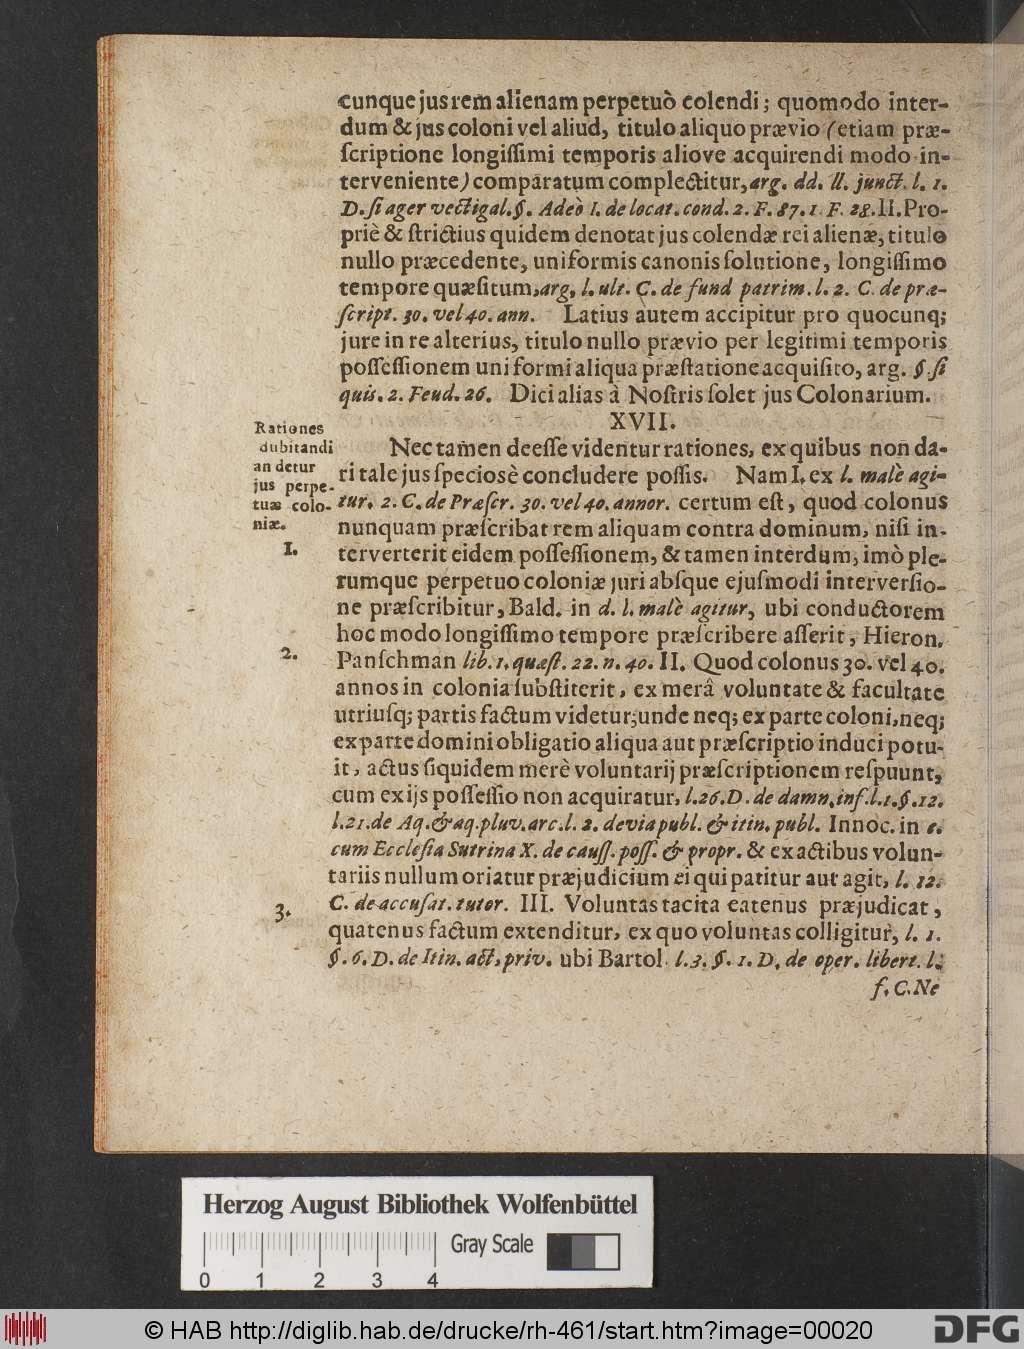 cunque jus rem alienam perpetuò colendi; quomodo inter-
dum & jus coloni vel aliud, titulo aliquo prævio (etiam præ-
ſcriptione longiſſimi temporis aliove acquirendi modo in-
terveniente) comparatum complectitur, arg. dd. ll. junct. l. 1.
D. ſi ager vectigal. §. Adeò I. de locat. cond. 2. F. 87. 1. F. 28. II. Pro-
priè & ſtrictius quidem denotat jus colendæ rei alienæ, titulo
nullo præcedente, uniformis canonis ſolutione, longiſſimo
tempore quæſitum, arg, l. ult. C. de fund patrim. l. 2. C. de præ-
ſcript. 30. vel 40. ann. Latius autem accipitur pro quocunq;
jure in re alterius, titulo nullo prævio per legitimi temporis
poſſeſſionem uniformi aliqua præſtatione acquiſito, arg. §. ſi
quis. 2. Feud. 26. Dici alias à Noſtris ſolet jus Colonarium.
XVII.
Rationes
dubitandi
an detur
jus perpe-
tuæ colo-
niæ.
Nec tamen deeſſe videntur rationes, ex quibus non da-
ri tale jus ſpeciosè concludere poſſis. Nam I. ex l. malè agi-
tur. 2. C. de Præſcr. 30. vel 40. annor. certum eſt, quod colonus
nunquam præſcribat rem aliquam contra dominum, niſi in-
1.
terverterit eidem poſſeſſionem, & tamen interdum, imò ple-
rumque perpetuo coloniæ juri abſque ejuſmodi interverſio-
ne præſcribitur, Bald. in d. l. malè agitur, ubi conductorem
hoc modo longiſſimo tempore præſcribere aſſerit, Hieron.
2.
Panſchman lib. 1. quæſt. 22. n. 40. II. Quod colonus 30. vel 40.
annos in colonia ſubſtiterit, ex merâ voluntate & facultate
utriuſq; partis factum videtur; unde neq; ex parte coloni, neq;
ex parte domini obligatio aliqua aut præſcriptio induci potu-
it, actus ſiquidem merè voluntarij præſcriptionem reſpuunt,
cum ex ijs poſſeſſio non acquiratur, l. 26. D. de damn. inf. l. 1. §. 12.
l. 21. de Aq. & aq. pluv. arc. l. 2. de via publ. & itin. publ. Innoc. in c.
cum Eccleſia Sutrina X. de cauſſ. poſſ. & propr. & ex actibus volun-
tariis nullum oriatur præjudicium ei qui patitur aut agit, l. 12.
3.
C. de accuſat. tutor. III. Voluntas tacita eatenus præjudicat,
quatenus factum extenditur, ex quo voluntas colligitur, l. 1.
§. 6. D. de Itin. act. priv. ubi Bartol. l. 3. §. 1. D. de oper. libert. l.
f. C. Ne
Herzog August Bibliothek Wolfenbüttel
Gray Scale
0 1 2 3 4
© HAB http://diglib.hab.de/drucke/rh-461/start.htm?image=00020
DFG